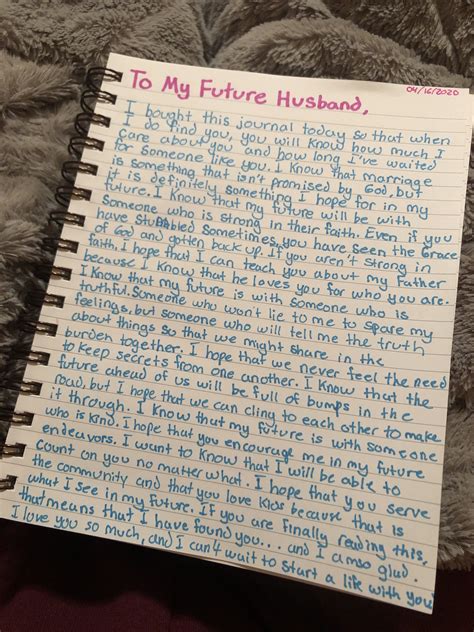 04/16/2020
To My Future Husband,
I bought this journal today so that when
I do find you, you will know how much I
care about you and how long i've waited
for someone like you. I know that marriage
is something that isn't promised by God, but
it is definitely something I hope for in my
future. I know that my future will be with
someone who is strong in their faith. Even if you
have stumbled sometimes, you have seen the Grace
of God and gotten back up. If you aren't strong in
faith, I hope that I can teach you about my Father
because I know that he loves you for who you are.
I know that my future is with someone who is
truthful. Someone who won't lie to me to spare my
feelings, but someone who will tell me the truth
about things so that we might share in the
burden together. I hope that we never feel the need
to keep secrets from one another. I know that the
future ahead of us will be full of bumps in the
road, but I hope that we can cling to each other to make
it through. I know that my future is with someone
who is kind. I hope that you encourage me in my future
endeavors. I want to know that I will be able to
count on you no matter what. I hope that you serve
the community and that you love kids because that is
what I see in my future. If you are finally reading this,
that means that I have found you... and I am so glad.
I love you so much, and I can't wait to start a life with you